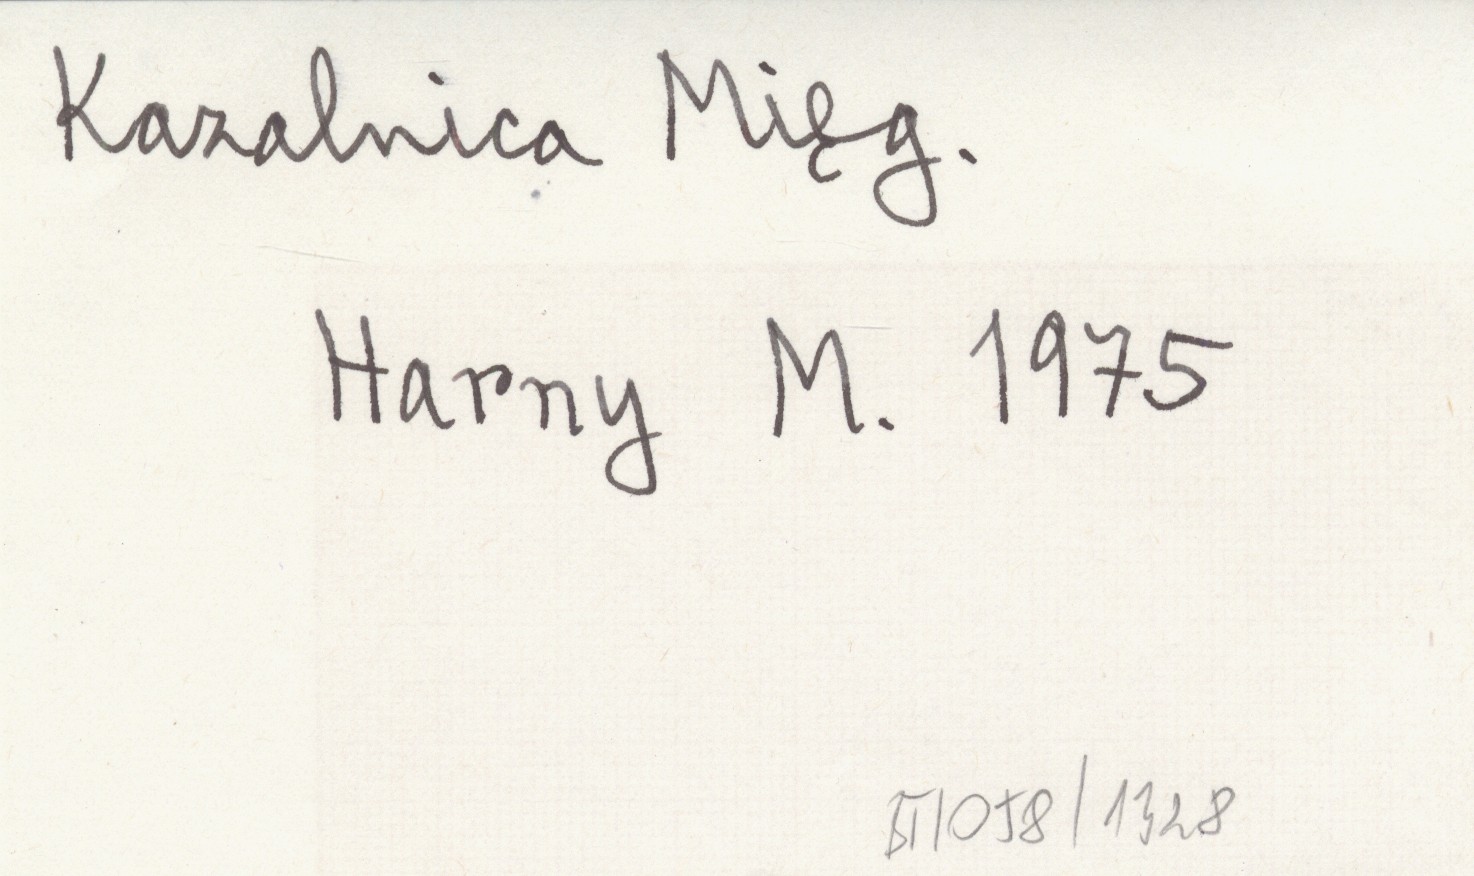 Kazalnica Mięg.
Harny M. 1975
/1328